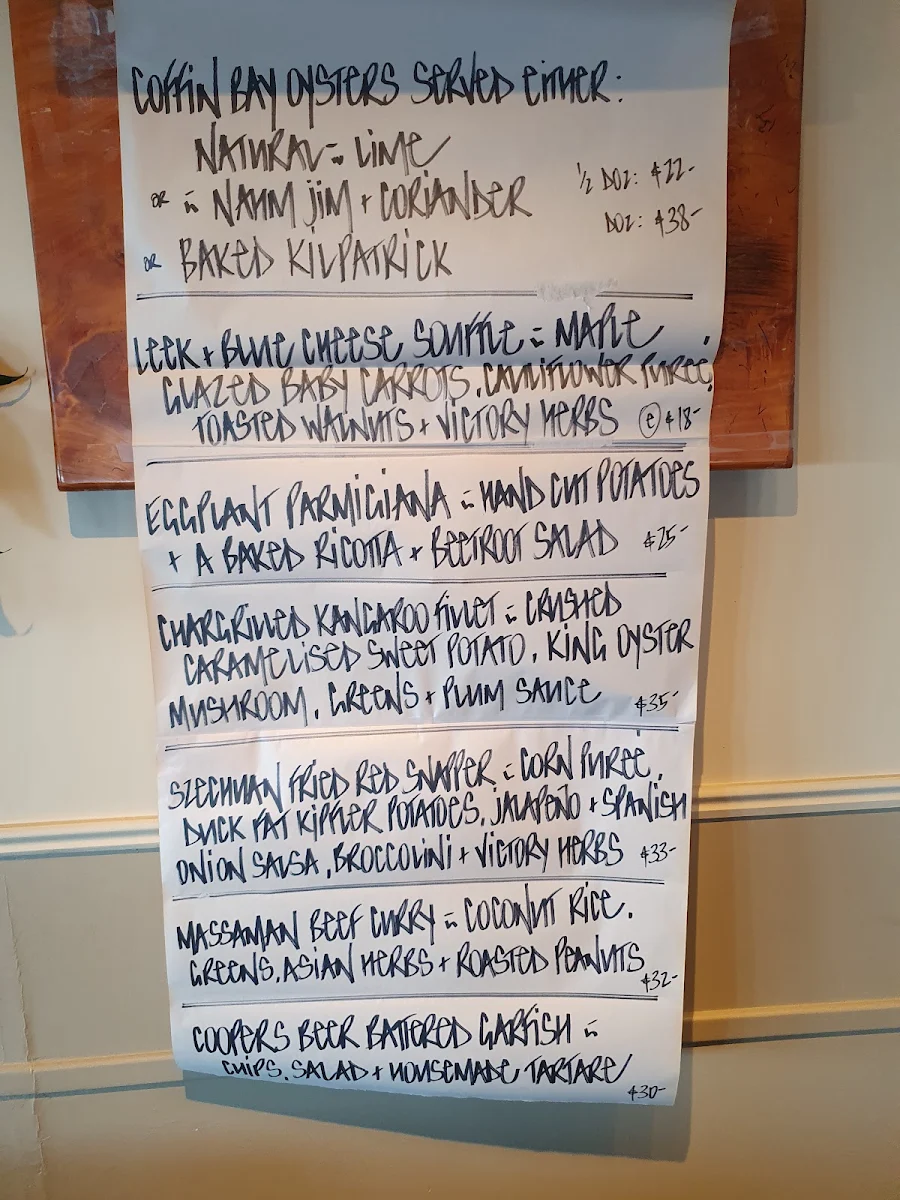 COFFIN BAY OYSTERS SERVED EITHER:
NATURAL - LIME
OR - NAHM JIM + CORIANDER
½ DOZ: $22-
DOZ: $38-
OR BAKED KILPATRICK
LEEK + BLUE CHEESE SOUFFLE - MAPLE
GLAZED BABY CARROTS, CAULIFLOWER PUREÉ,
TOASTED WALNUTS + VICTORY HERBS (e) $18-
EGGPLANT PARMIGIANA - HAND CUT POTATOES
+ A BAKED RICOTTA + BEETROOT SALAD $25-
CHARGRILLED KANGAROO FILLET - CRUSHED
CARAMELISED SWEET POTATO, KING OYSTER
MUSHROOM, GREENS + PLUM SAUCE $35-
SZECHUAN FRIED RED SNAPPER - CORN PUREÉ,
DUCK FAT KIPFLER POTATOES, JALAPEÑO + SPANISH
ONION SALSA, BROCCOLINI + VICTORY HERBS $33-
MASSAMAN BEEF CURRY - COCONUT RICE,
GREENS, ASIAN HERBS + ROASTED PEANUTS $32-
COOPERS BEER BATTERED GARFISH -
CHIPS, SALAD + HOUSEMADE TARTARE
$30-